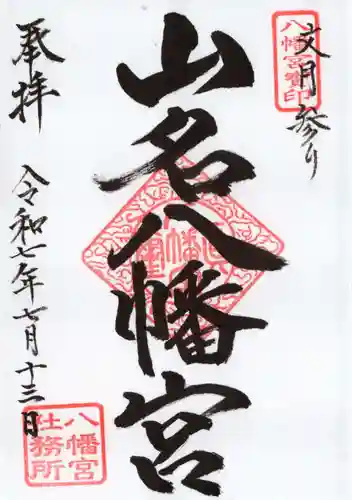 文月参り
八幡宮寳印
山名八幡宮
奉拝
令和七年七月十三日
八幡宮
社務所